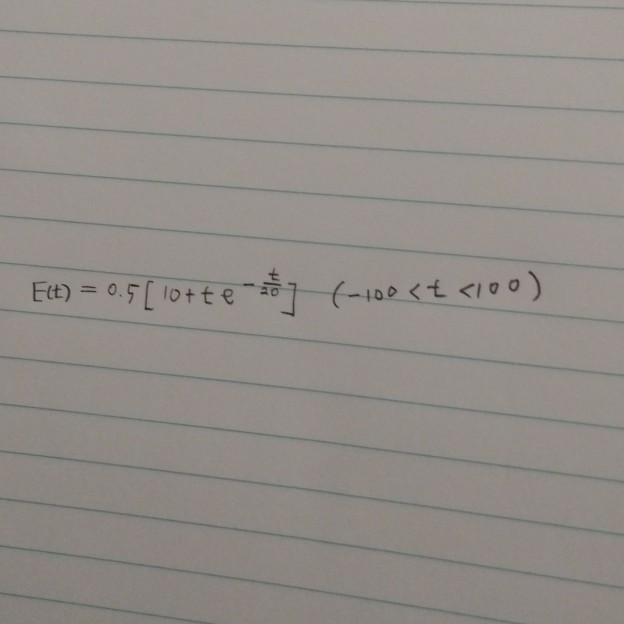 E(t) = 0.5 [ 10 + t e^{-\frac{t}{20}} ] (-100 < t < 100)